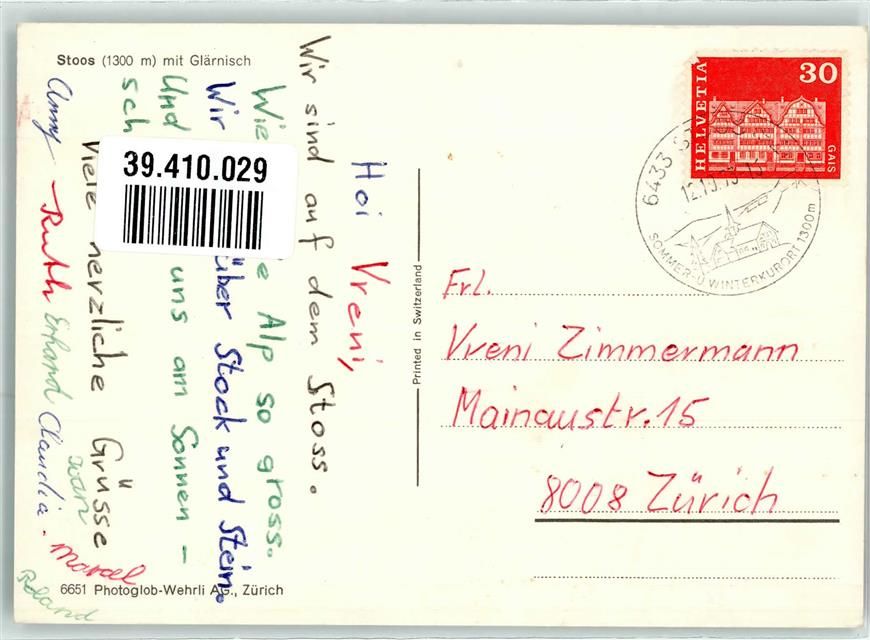 Stoos (1300 m) mit Glärnisch
Hoi Vreni,
Wir sind auf dem Stoss.
Wie Alp so gross.
Wir über Stock und Stein.
Und uns am Sonnen –
sch
Viele herzliche Grüsse
Anny Ruth Erhard Claudia.
Ivan
Marcel
Roland
39.410.029
6651 Photoglob-Wehrli AG., Zürich
Printed in Switzerland
HELVETIA
30
GAIS
6433
SOMMER-U WINTERKURORT 1300m
Frl.
Vreni Zimmermann
Mainaustr. 15
8008 Zürich